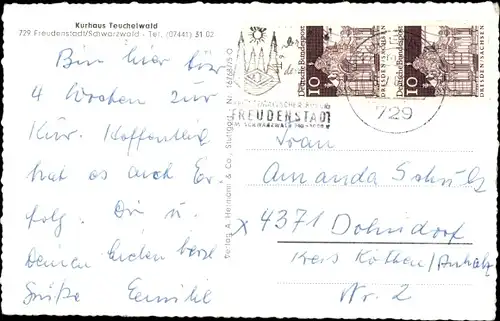 Kurhaus Teuchelwald
729 Freudenstadt/Schwarzwald - Tel. (07441) 31 02
Bin hier für
4 Wochen zur
Kur. Hoffentlich
hat es auch Er-
folg. Dir u.
Deinen beiden herzl.
Grüße
Verlag A. Heimann & Co., Stuttgart, Nr.
Deutsche Bundespost
10
DRESDEN/SACHSEN
Deutsche Bundespost
10
DRESDEN/SACHSEN
FREUDENSTADT
729
Frau
Amanda Schulz
4371 Dohndorf
Kreis Köthen/Anhalt
Nr. 2